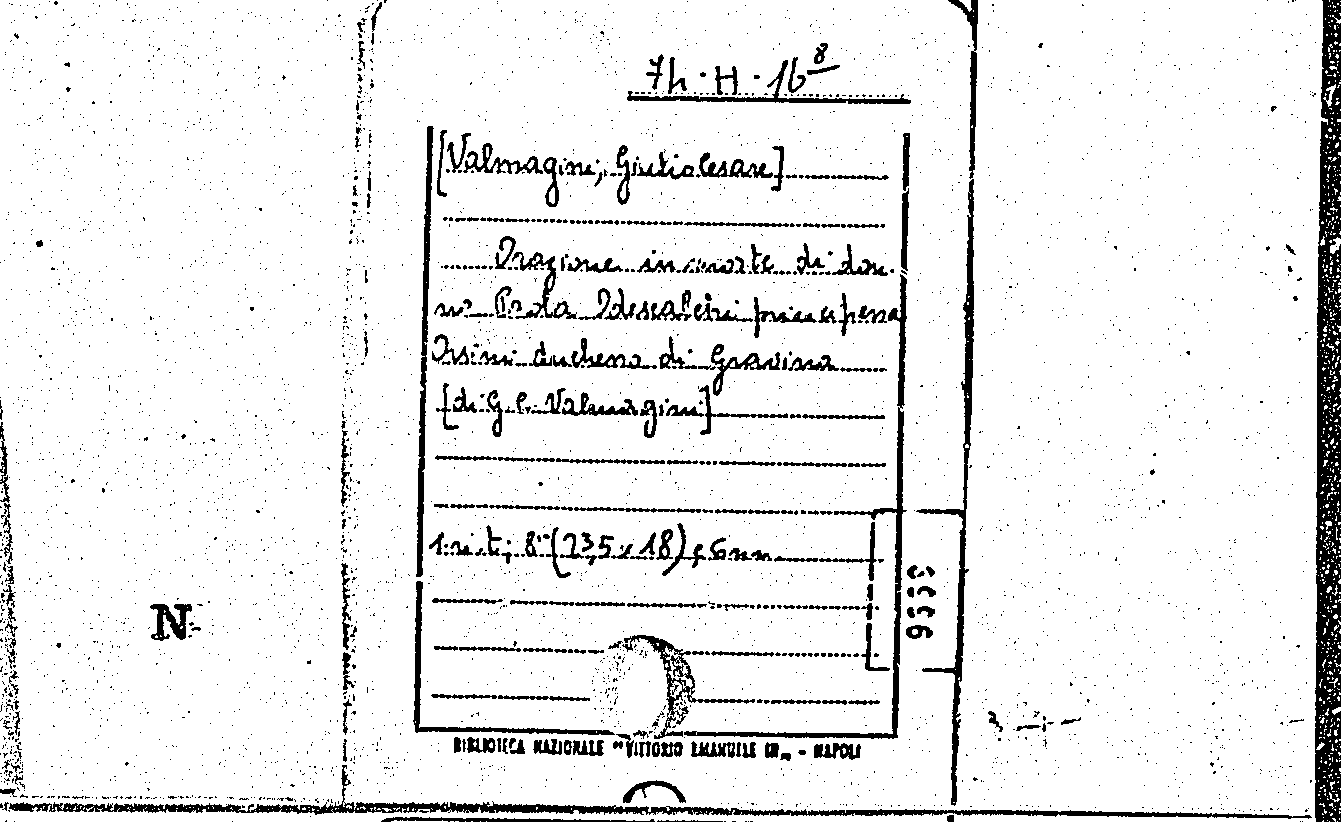 7h · H · 16 8
[Valmagini, Giulio Cesare]
Orazione in morte di don-
na Paola Odescalchi principessa
Orsini duchessa di Gravina
[di G. C. Valmagini]
8° (23,5 x 18),
N
BIBLIOTECA NAZIONALE "VITTORIO EMANUELE III" - NAPOLI